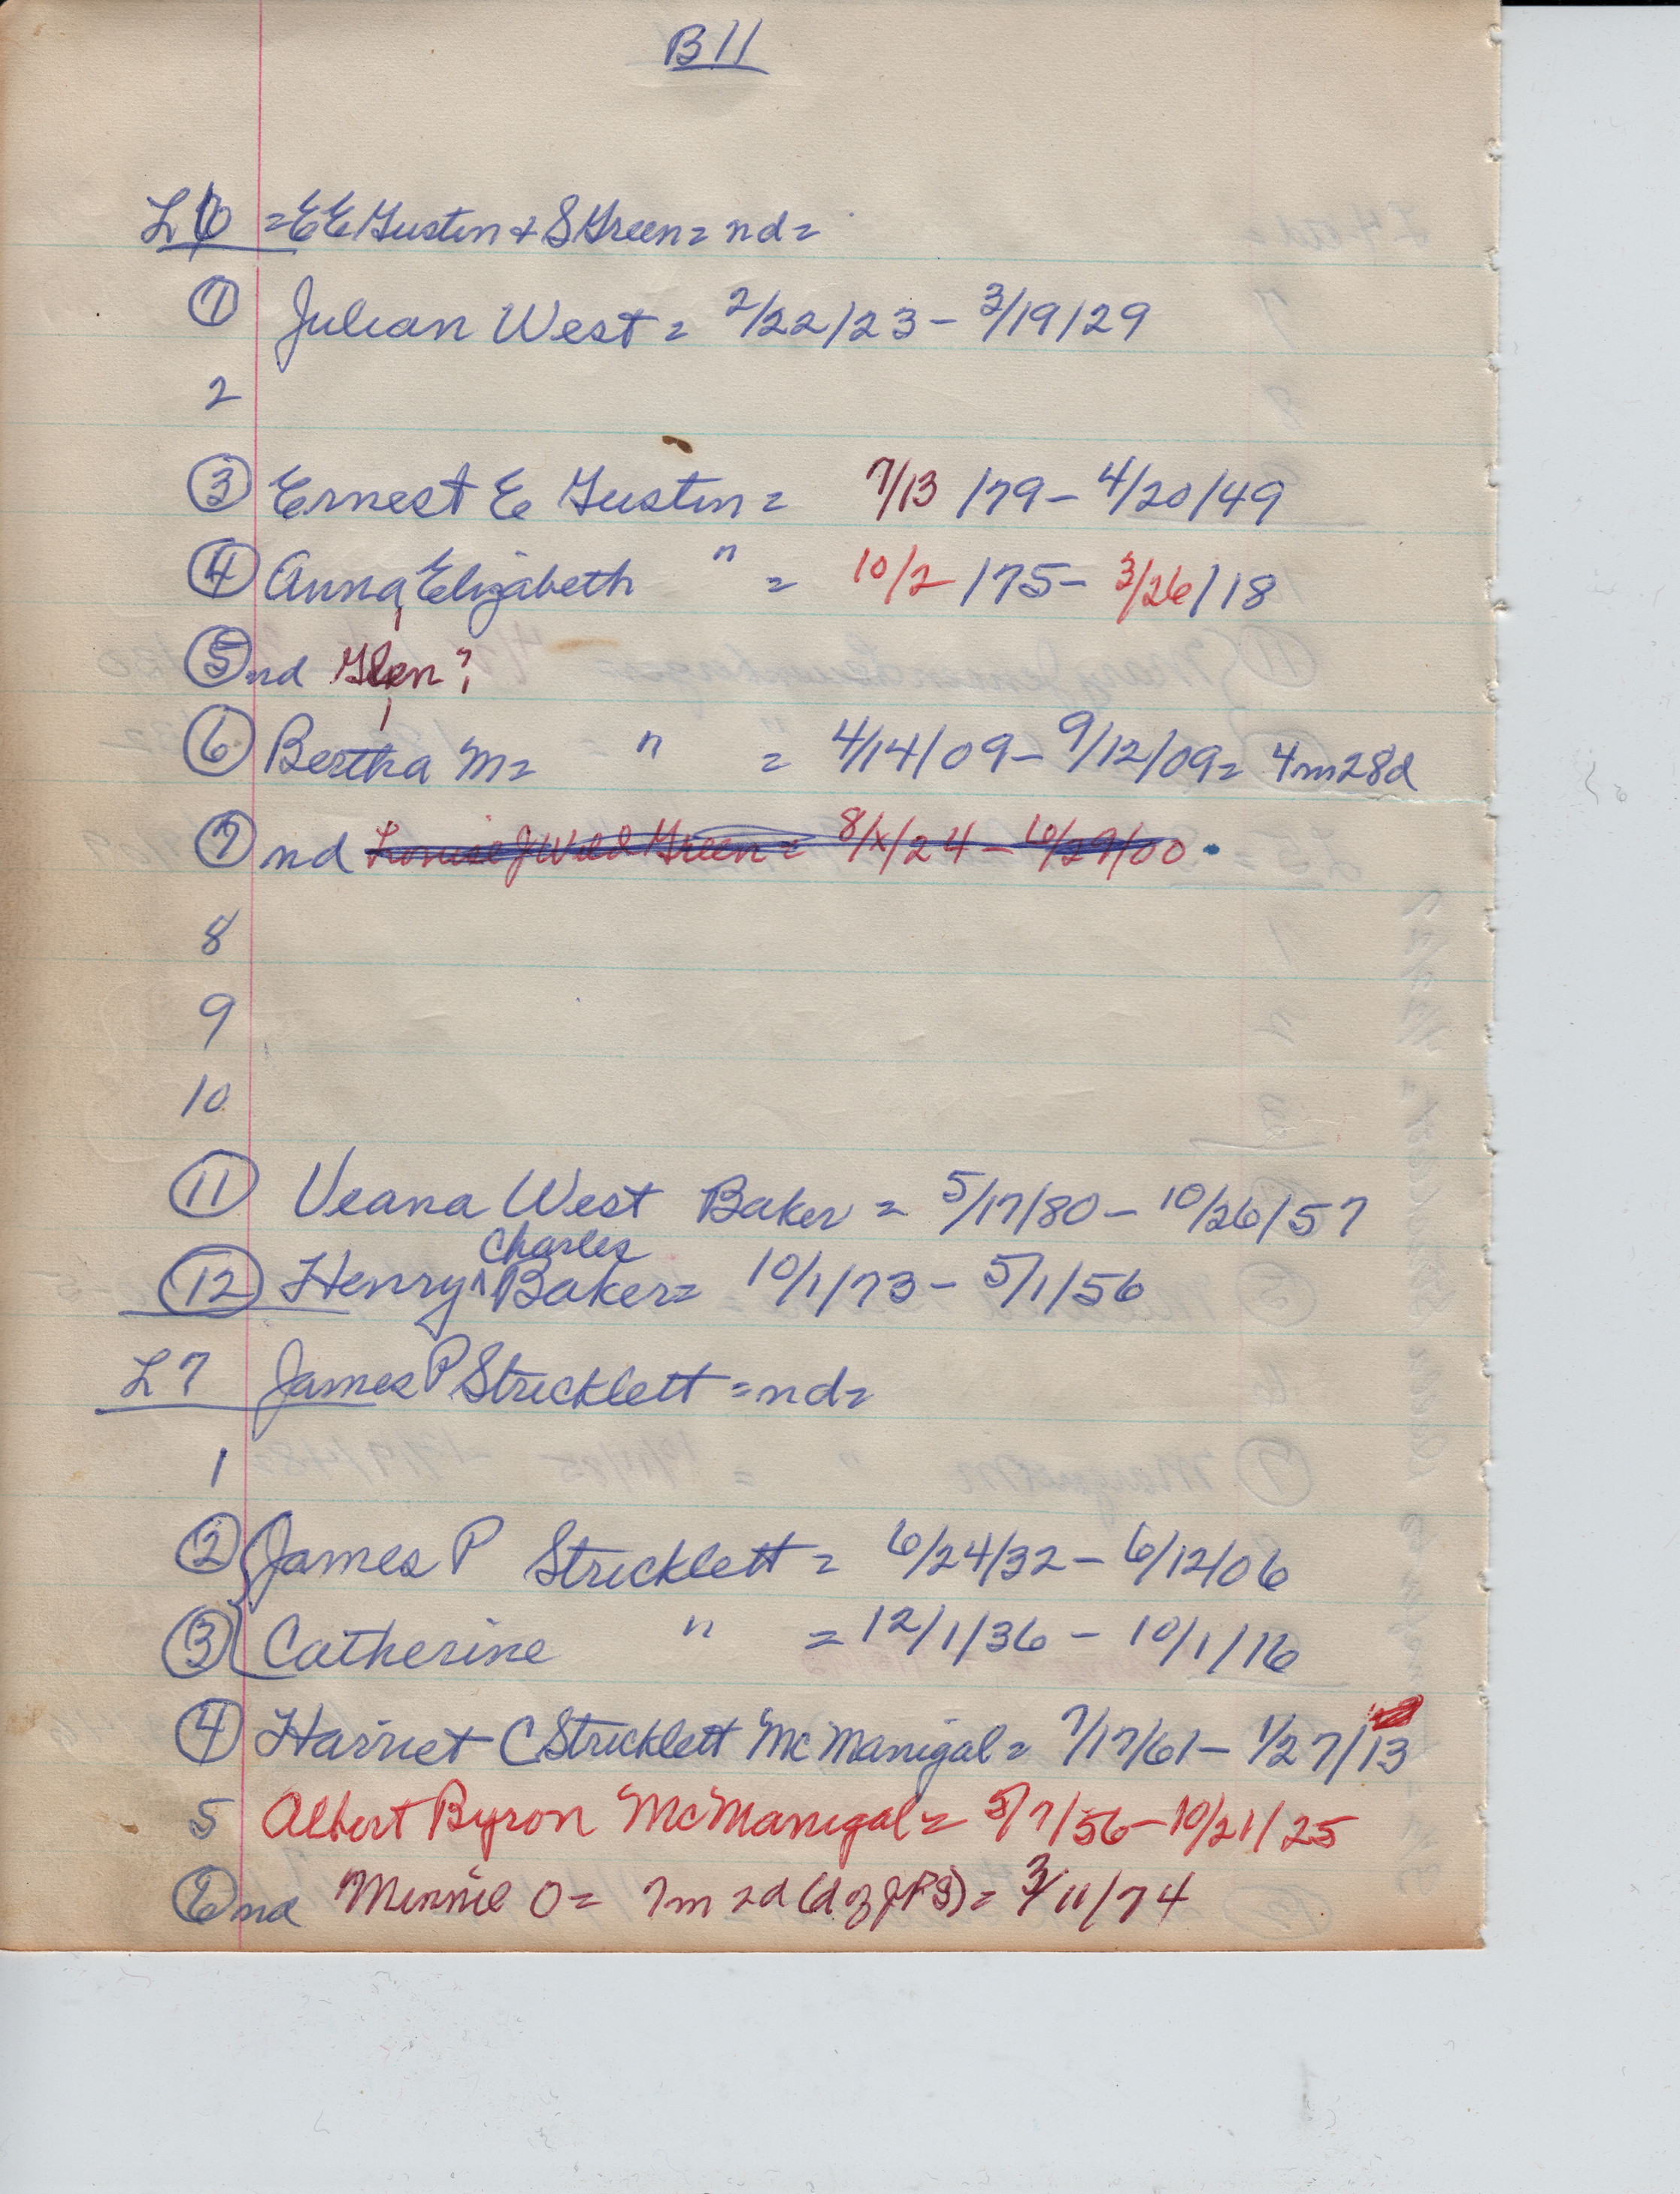 B11
L6 = E E Gustin + S Green = nd =
1 Julian West = 2/22/23 - 3/19/29
2
3 Ernest E Gustin = 7/13/79 - 4/20/49
4 Anna Elizabeth " = 10/2/75 - 3/26/18
5 nd Glen?
6 Bertha M = " = 4/14/09 - 9/12/09 = 4m28d
7 nd Louise J Wild Green = 8/x/24 - 10/29/00
8
9
10
11 Veana West Baker = 5/17/80 - 10/26/57
12 Henry ^ Charles Baker = 10/1/73 - 5/1/56
L7 James P Stricklett = nd =
1
2 { James P Stricklett = 6/24/32 - 6/12/06
3 { Catherine " = 12/1/36 - 10/1/16
4 Harriet C Stricklett McManigal = 7/17/61 - 1/27/13
5 Albert Byron McManigal = 5/7/56 - 10/21/25
6 nd Minnie O = 7m 2d (d of JPS) = 3/11/74